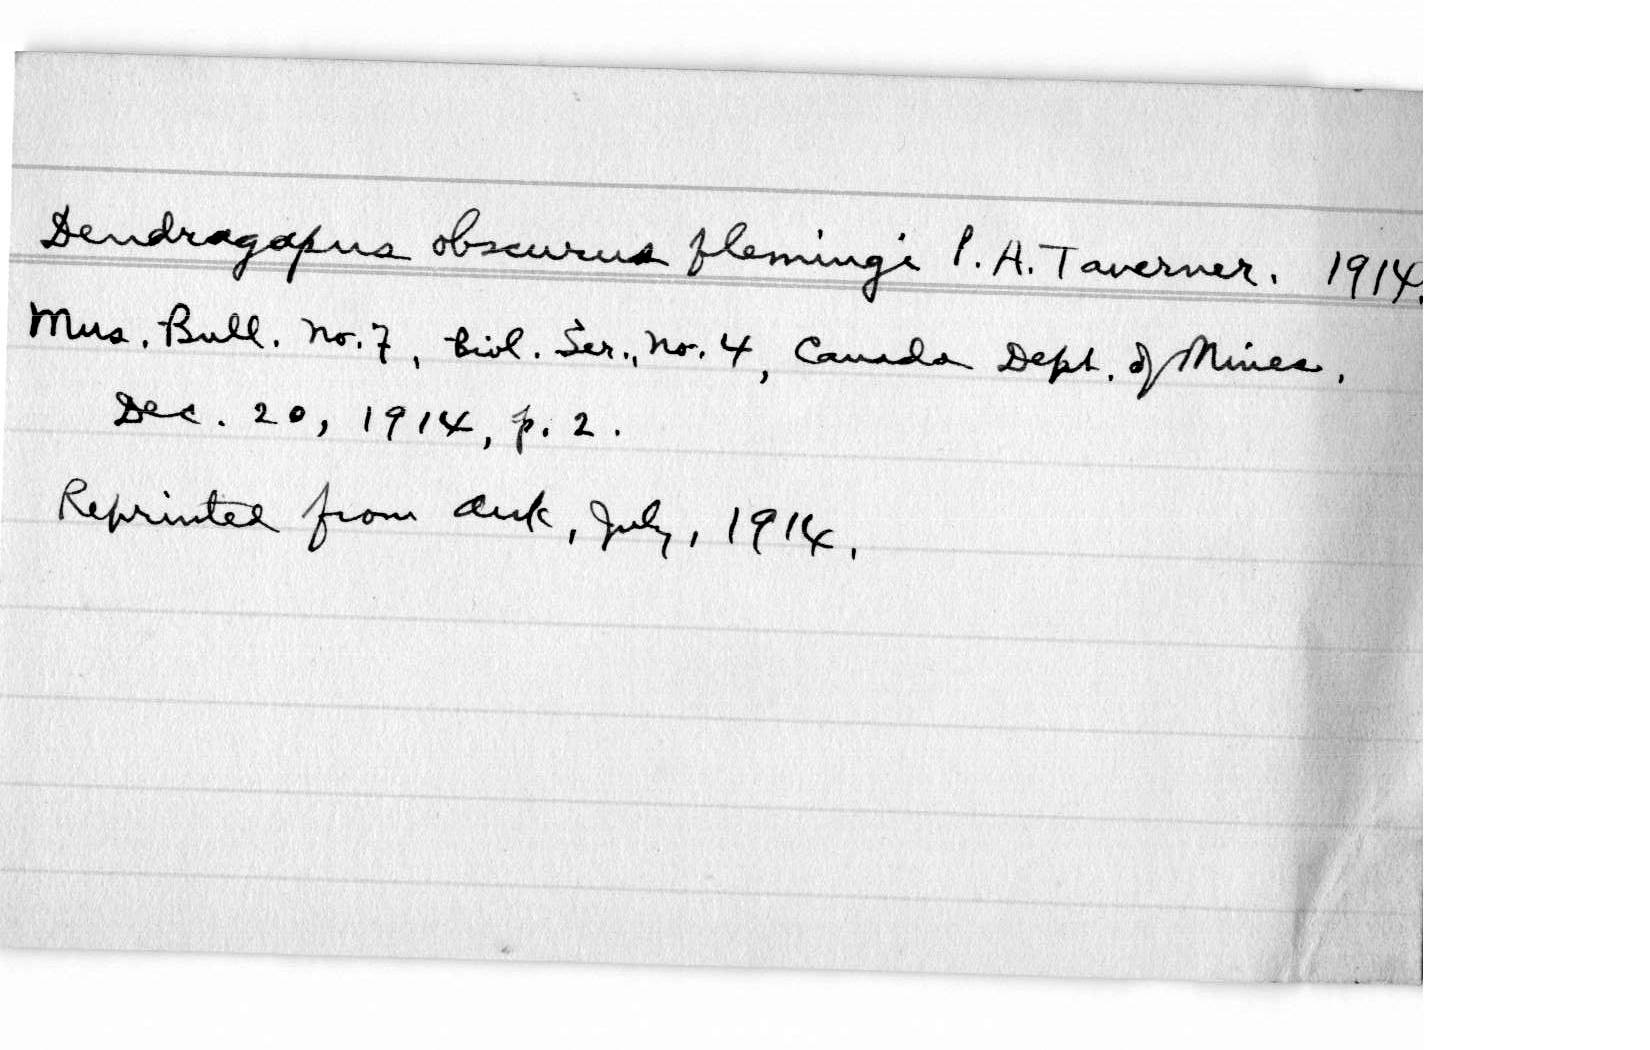 Dendragapus obscurus flemingi P. A. Taverner. 1914.
Mus. Bull. No. 7, Biol. Ser., No. 4, Canada Dept. of Mines.
Dec. 20, 1914, p. 2.
Reprinted from Auk, July, 1914.